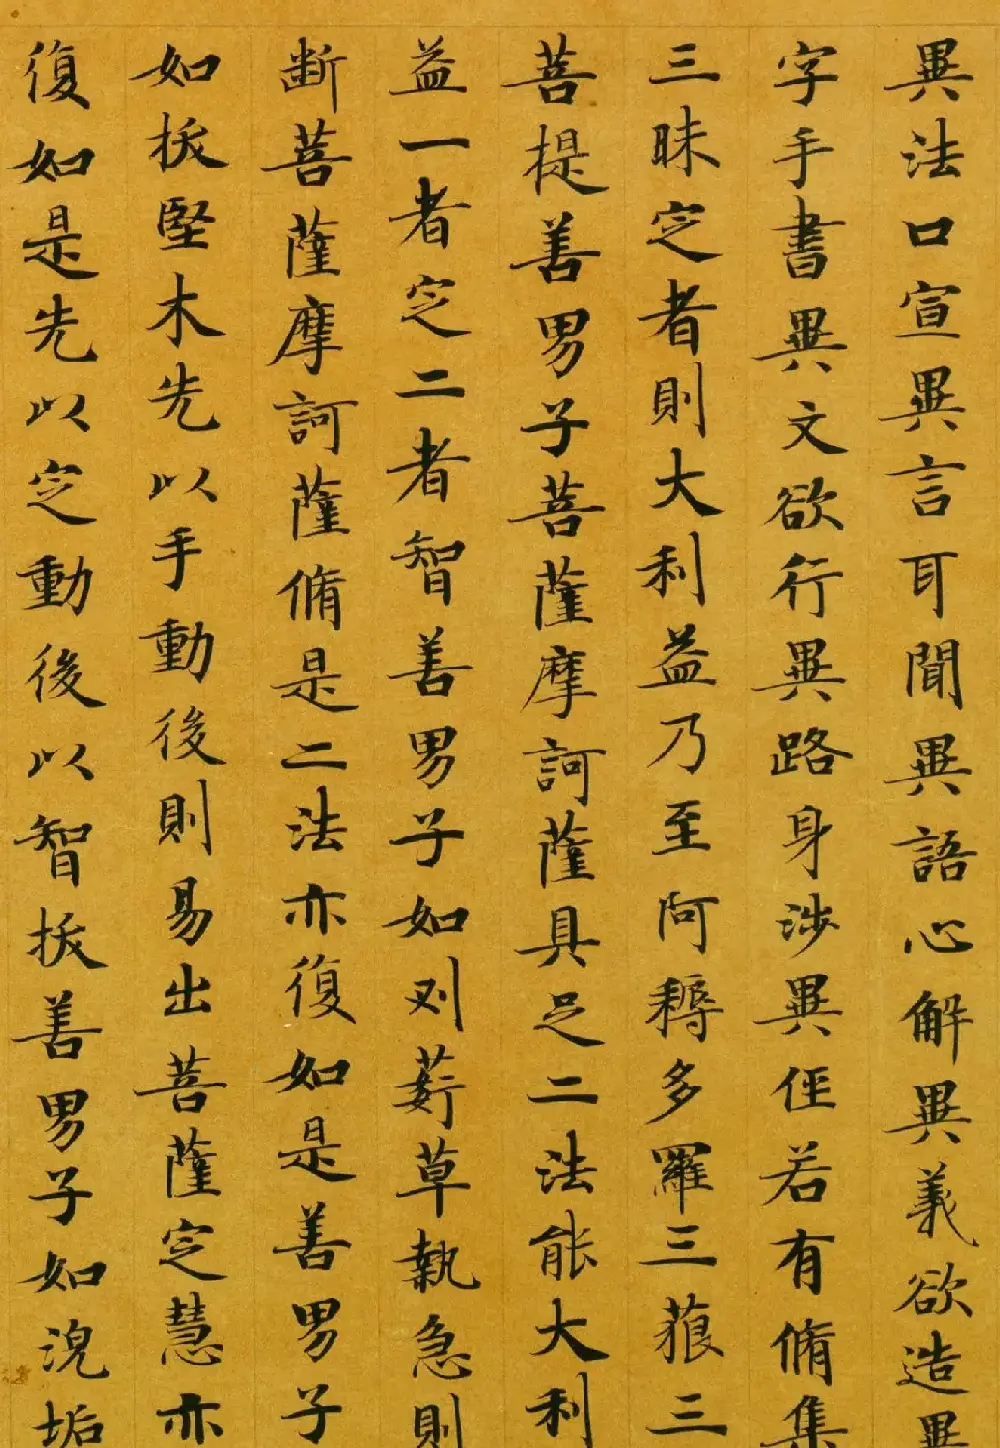 異法口宣異言耳聞異語心解異義欲造異
字手書異文欲行異路身涉異徑若有脩集
三昧定者則大利益乃至阿耨多羅三藐三
菩提善男子菩薩摩訶薩具足二法能大利
益一者定二者智善男子如刈菥草執急則
斷菩薩摩訶薩脩是二法亦復如是善男子
如拔堅木先以手動後則易出菩薩定慧亦
復如是先以定動後以智拔善男子如浣垢